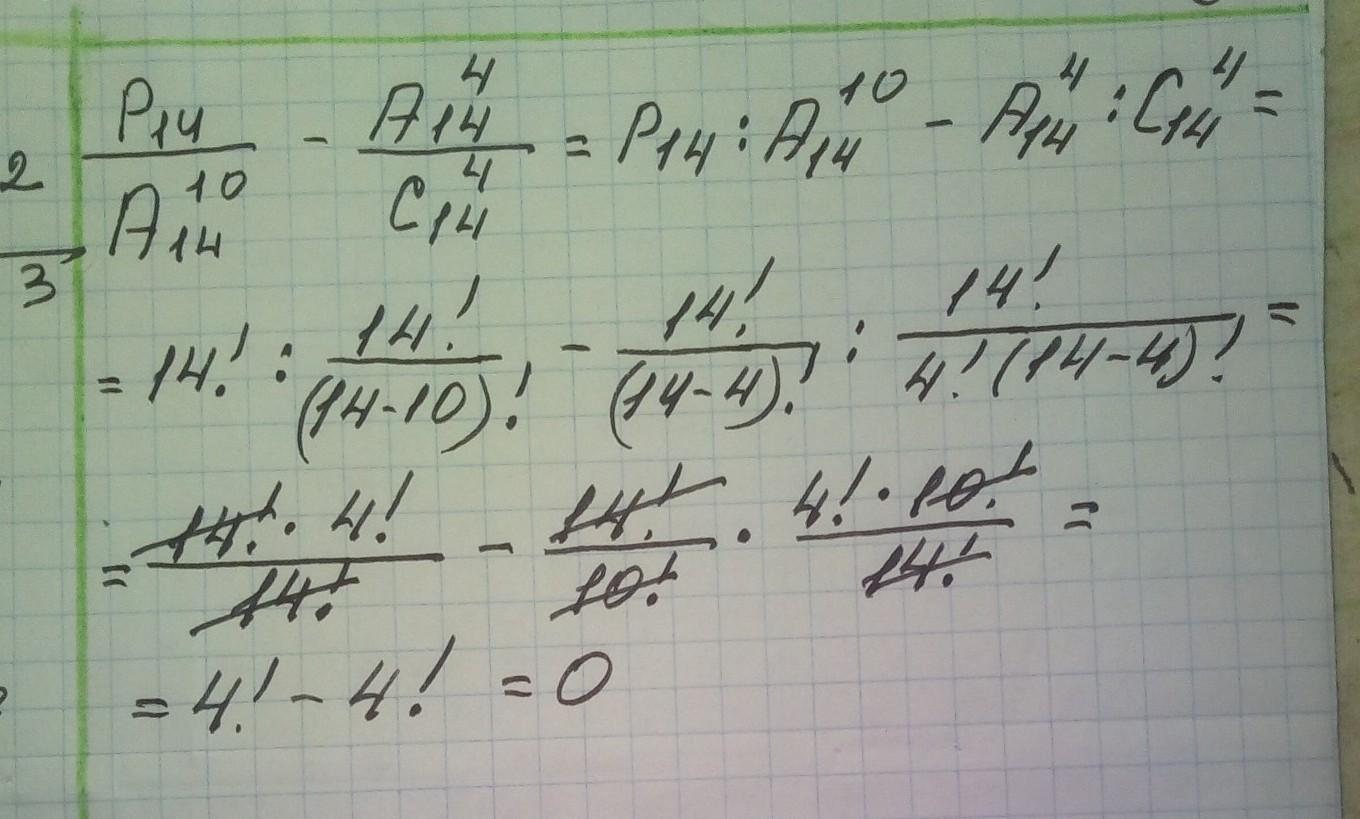 2/3
P₁₄/A₁₄¹⁰ - A₁₄⁴/C₁₄⁴ = P₁₄ : A₁₄¹⁰ - A₁₄⁴ : C₁₄⁴ =
= 14! : 14!/(14-10)! - 14!/(14-4)! : 14!/4!(14-4)! =
= 14! · 4!/14! - 14!/10! · 4! · 10!/14! =
= 4! - 4! = 0